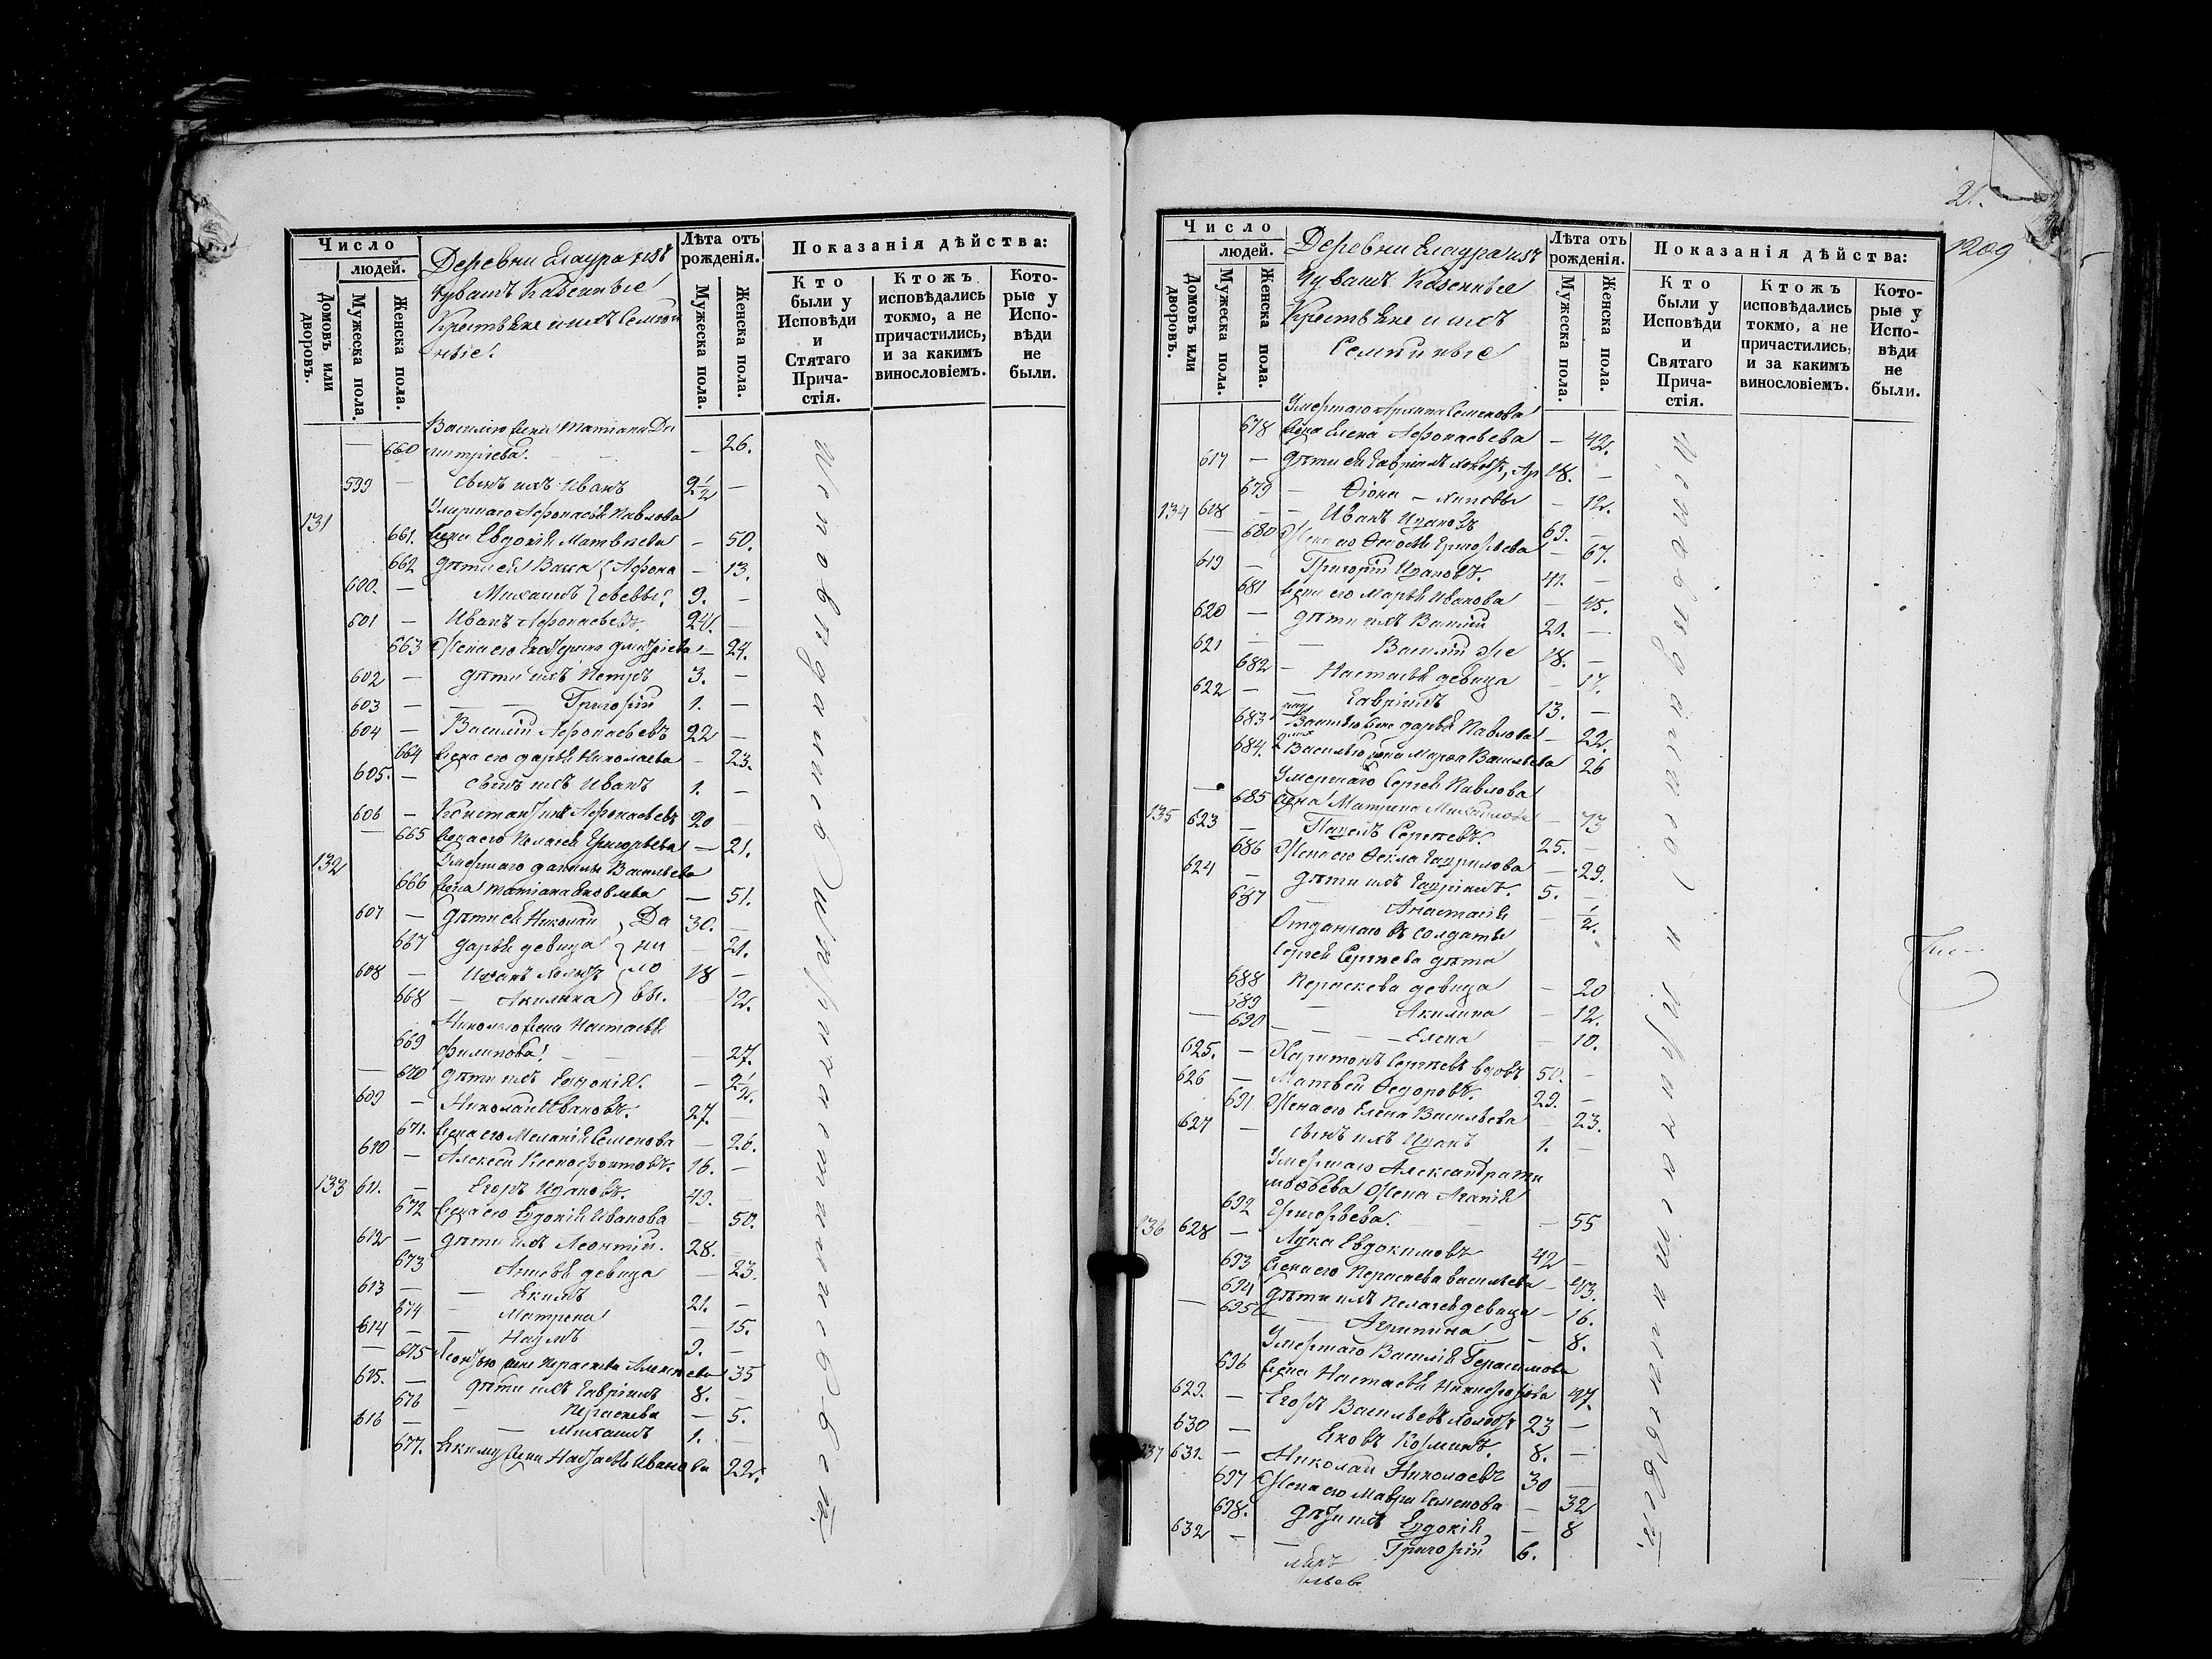 Число
людей.
Домовъ или дворовъ.
Мужеска пола.
Женска пола.
Деревни Елаура изъ
Чувашъ Казенные
Крестьяне и ихъ Семей
ные.
Лѣта отъ рожденія.
Мужеска пола.
Женска пола.
Показанія дѣйства:
Кто были у Исповѣди и Стятаго Прича-стія.
Ктожъ исповѣдались токмо, а не причастились, и за какимъ винословіемъ.
Кото-рые у Испо-вѣди не были.
Василію жена Татіана Ди
660 митріева. — 26.
599 — сынъ ихъ Иванъ 2 1/2 —
131 Умершаго Афонасья Павлова
661. жена Евдокія Матвѣева — 50.
662 дѣти ея Васса } Афона — 13.
600. — Михаилъ } сьевы. 9. —
601 — Иванъ Афонасьевъ. 24. —
663 Жена его Екатерина Дмитріева — 24.
602 — дѣти ихъ Петръ 3. —
603 — — Григорій 1. —
604 — Василій Афонасьевъ 22 —
664 жена его Дарья Николаева — 23.
605. — сынъ ихъ Иванъ 1. —
606 — Константинъ Афонасьевъ 20 —
— 665 жена его Пелагея Григорьева — 21.
132 Умершаго Данилы Васильева
666 жена Татіана Яковлева — 51.
607 — дѣти ея Николай } Да 30. —
667 Дарья девица } ни — 21.
608 — Иванъ холостъ } ло 18 —
668 — Акилина } вы. — 12.
Николаю жена Настасья
669 Филипова. — — 27.
— 670 дѣти ихъ Евдокія. — 2 1/2.
609 — Николай Ивановъ. 27. —
671. жена его Меланія Семенова — 26.
610 — Алексей Ксенофонтовъ. 16. —
133 611. — Егоръ Ивановъ. 49. —
672 жена его Евдокія Иванова — 50.
612 — дѣти ихъ Леонтій. 28. —
673 Анисья девица — 23.
613 — — Екимъ 21. —
674 — Матрена — 15.
614 — — Наумъ 9. —
— 675 Леонтью жена Параскева Алексеева 35
615. — дѣти ихъ Гавріилъ 8. —
676 — Параскева — 5.
616 — — Михаилъ 1. —
677. Екиму жена Настасья Иванова 22.
Исповѣдались и причастились всѣ
21.
1209
Число
людей.
Домовъ или дворовъ.
Мужеска пола.
Женска пола.
Деревни Елаура изъ
Чувашъ Казенные
Крестьяне и ихъ
Семейные
Лѣта отъ рожденія.
Мужеска пола.
Женска пола.
Показанія дѣйства:
Кто были у Исповѣди и Святаго Прича-стія.
Ктожъ исповѣдались токмо, а не причастились, и за какимъ винословіемъ.
Кото-рые у Испо-вѣди не были.
Умершаго Архипа Семенова
678 жена Елена Афонасьева — 42.
617 — дѣти ея Гавріилъ холостъ, Ар 18. —
679 — Ѳіона — хиповы — 12.
134 618 — Иванъ Ивановъ 69. —
— 680 Жена его Ѳедосья Григорьева — 67.
619 — Григорій Ивановъ. 41. —
681 жена его Марья Иванова — 45.
620 — дѣти ихъ Василій 21. —
621 — — Василій же 18. —
682 — Настасья девица — 17.
622 — — Гавріилъ 13. —
683 Василью жена Дарья Павлова — 22.
684. Василью жена Марѳа Васильева 26
Умершаго Сергея Павлова
685 жена Матрена Михайлова — 73
135 623 — Павелъ Сергѣевъ. 25. —
686 Жена его Ѳекла Гаврилова — 29.
624 — дѣти ихъ Гавріилъ. 5. —
687 Анастасія — 1/2.
Отданнаго въ солдаты
Сергея Сергѣева дѣти
688 Параскева девица — 20
689 — Акилина — 12.
— 690 — — Елена — 10.
625. — Харитонъ Сергѣевъ вдовъ 50. —
626 — Матвей Ѳедоровъ. 29. —
691 Жена его Елена Васильева — 23.
627 — сынъ ихъ Иванъ 1. —
Умершаго Александра Ти
моѳеева Жена Агапія
692 Григорьева. — 55
136 628 — Лука Евдокимовъ 42 —
693 жена его Параскева Васильева — 43.
694 дѣти ихъ Пелагея девица — 16.
— 695 — Агрипина — 8.
Умершаго Василія Герасимова
696 жена Настасья Никифорова 47.
629. — Егоръ Васильевъ холостъ 23 —
630 — Яковъ Козминъ. 8. —
137 631. — Николай Николаевъ 30 —
697 Жена его Мавра Семенова — 32
698. дѣти ихъ Евдокія — 8
632 — — Григорій 6.
Исповѣдались и причастились всѣ